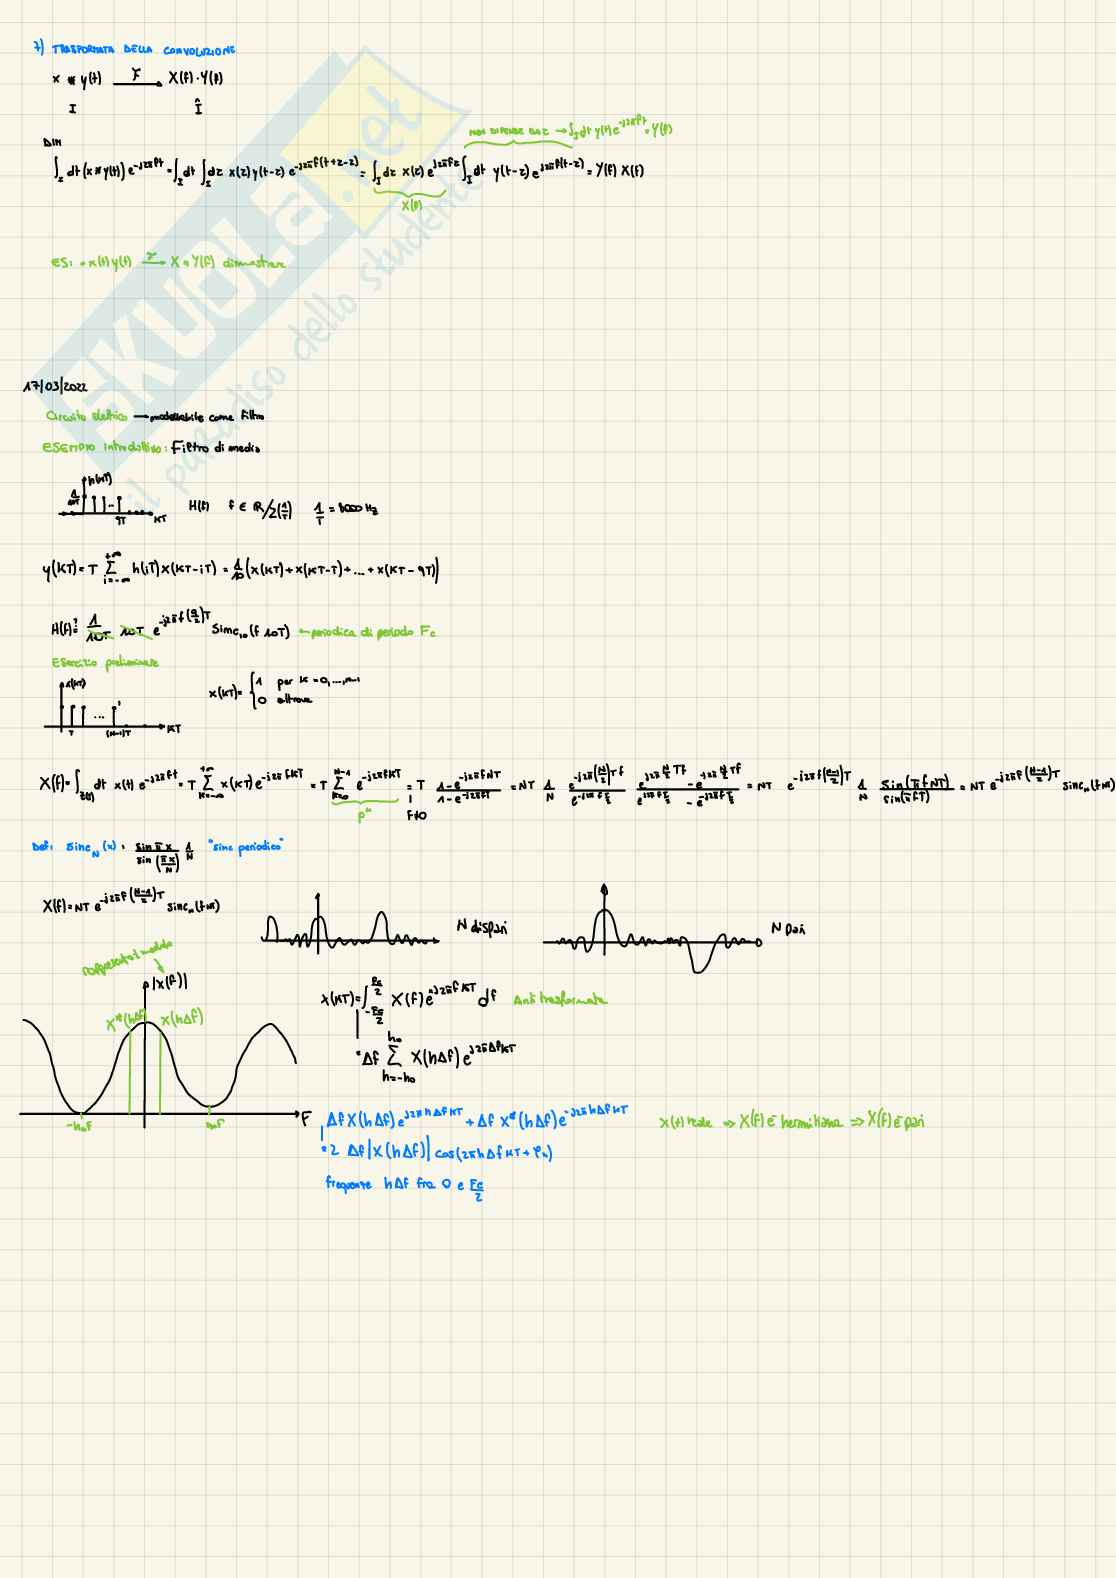 7) TRASFORMATA DELLA CONVOLUZIONE
x * y(t) —F→ X(f)·Y(f)
I Î
NON DIPENDE DA τ → ∫_I dt y(t) e^{-j2πft} = Y(f)
DIM
∫_I dt (x*y(t)) e^{-j2πft} = ∫_I dt ∫_I dτ x(τ) y(t-τ) e^{-j2πf(t+τ-τ)} = ∫_I dτ x(τ) e^{j2πfτ} ∫_I dt y(t-τ) e^{j2πf(t-τ)} = Y(f) X(f)
X(f)
ES: • x(t) y(t) —F→ X * Y(f) dimostrare
SKUOLA.net
il paradiso dello studente
17/03/2022
Circuito elettrico → modellabile come filtro
ESEMPIO introduttivo: Filtro di media
h(kT)
1/10T
9T kT
H(f) f ∈ R/Z(1/T) 1/T = 8000 Hz
y(kT) = T Σ_{i=-∞}^{+∞} h(iT) x(kT-iT) = 1/10 (x(kT) + x(kT-T) + ... + x(kT-9T))
H(f) ?= 1/10T 10T e^{-j2πf(9/2)T} Sinc₁₀(f 10T) ← periodica di periodo Fc
Esercizio preliminare
x(kT)
1
...
T (N-1)T kT
x(kT) = { 1 per k=0,...,N-1
0 altrove
X(f) = ∫_{Z(T)} dt x(t) e^{-j2πft} = T Σ_{k=-∞}^{+∞} x(kT) e^{-j2πfkT} = T Σ_{k=0}^{N-1} e^{-j2πfkT} = T (1-e^{-j2πfNT})/(1-e^{-j2πfT}) = NT 1/N e^{-j2π(N/2)Tf}/e^{-j2πf T/2} (e^{j2π N/2 Tf} - e^{-j2π N/2 Tf})/(e^{j2πf T/2} - e^{-j2πf T/2}) = NT e^{-j2πf((N-1)/2)T} 1/N sin(πfNT)/sin(πfT) = NT e^{-j2πf((N-1)/2)T} sinc_N(fNT)
p^k
f≠0
Def: sinc_N(x) = sin πx / sin(πx/N) 1/N "sinc periodico"
X(f) = NT e^{-j2πf((N-1)/2)T} sinc_N(fNT)
N dispari
N pari
rappresento il modulo
|X(f)|
X*(hΔf) X(hΔf)
F
x(kT) = ∫_{-Fc/2}^{Fc/2} X(f) e^{j2πfkT} df Antitrasformata
= Δf Σ_{h=-h₀}^{h₀} X(hΔf) e^{j2πΔfkT}
Δf X(hΔf) e^{j2πhΔfkT} + Δf X*(hΔf) e^{-j2πhΔfkT}
= 2 Δf |X(hΔf)| cos(2πhΔfkT + φ_h)
frequenze hΔf fra 0 e Fc/2
x(t) reale ⇒ X(f) è hermitiana ⇒ X(f) è pari